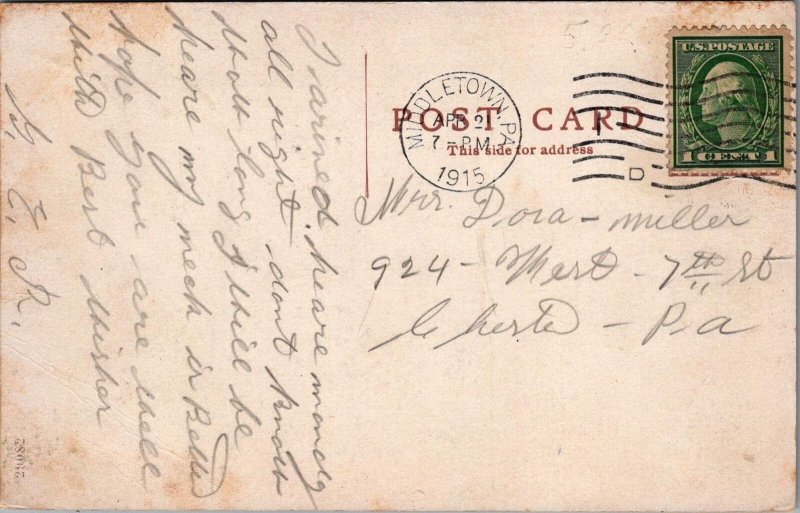 POST CARD
This side for address
MIDDLETOWN, PA.
APR 21
7-PM
1915
D
U.S. POSTAGE
1 CENT 1
Mrs. Dora - miller
924 - West - 7th St
Chester - Pa
I arived heare monday
all right dont know
how long I will be
heare my neck is Better
hope you are well
with Best Wishes
G. E. R.